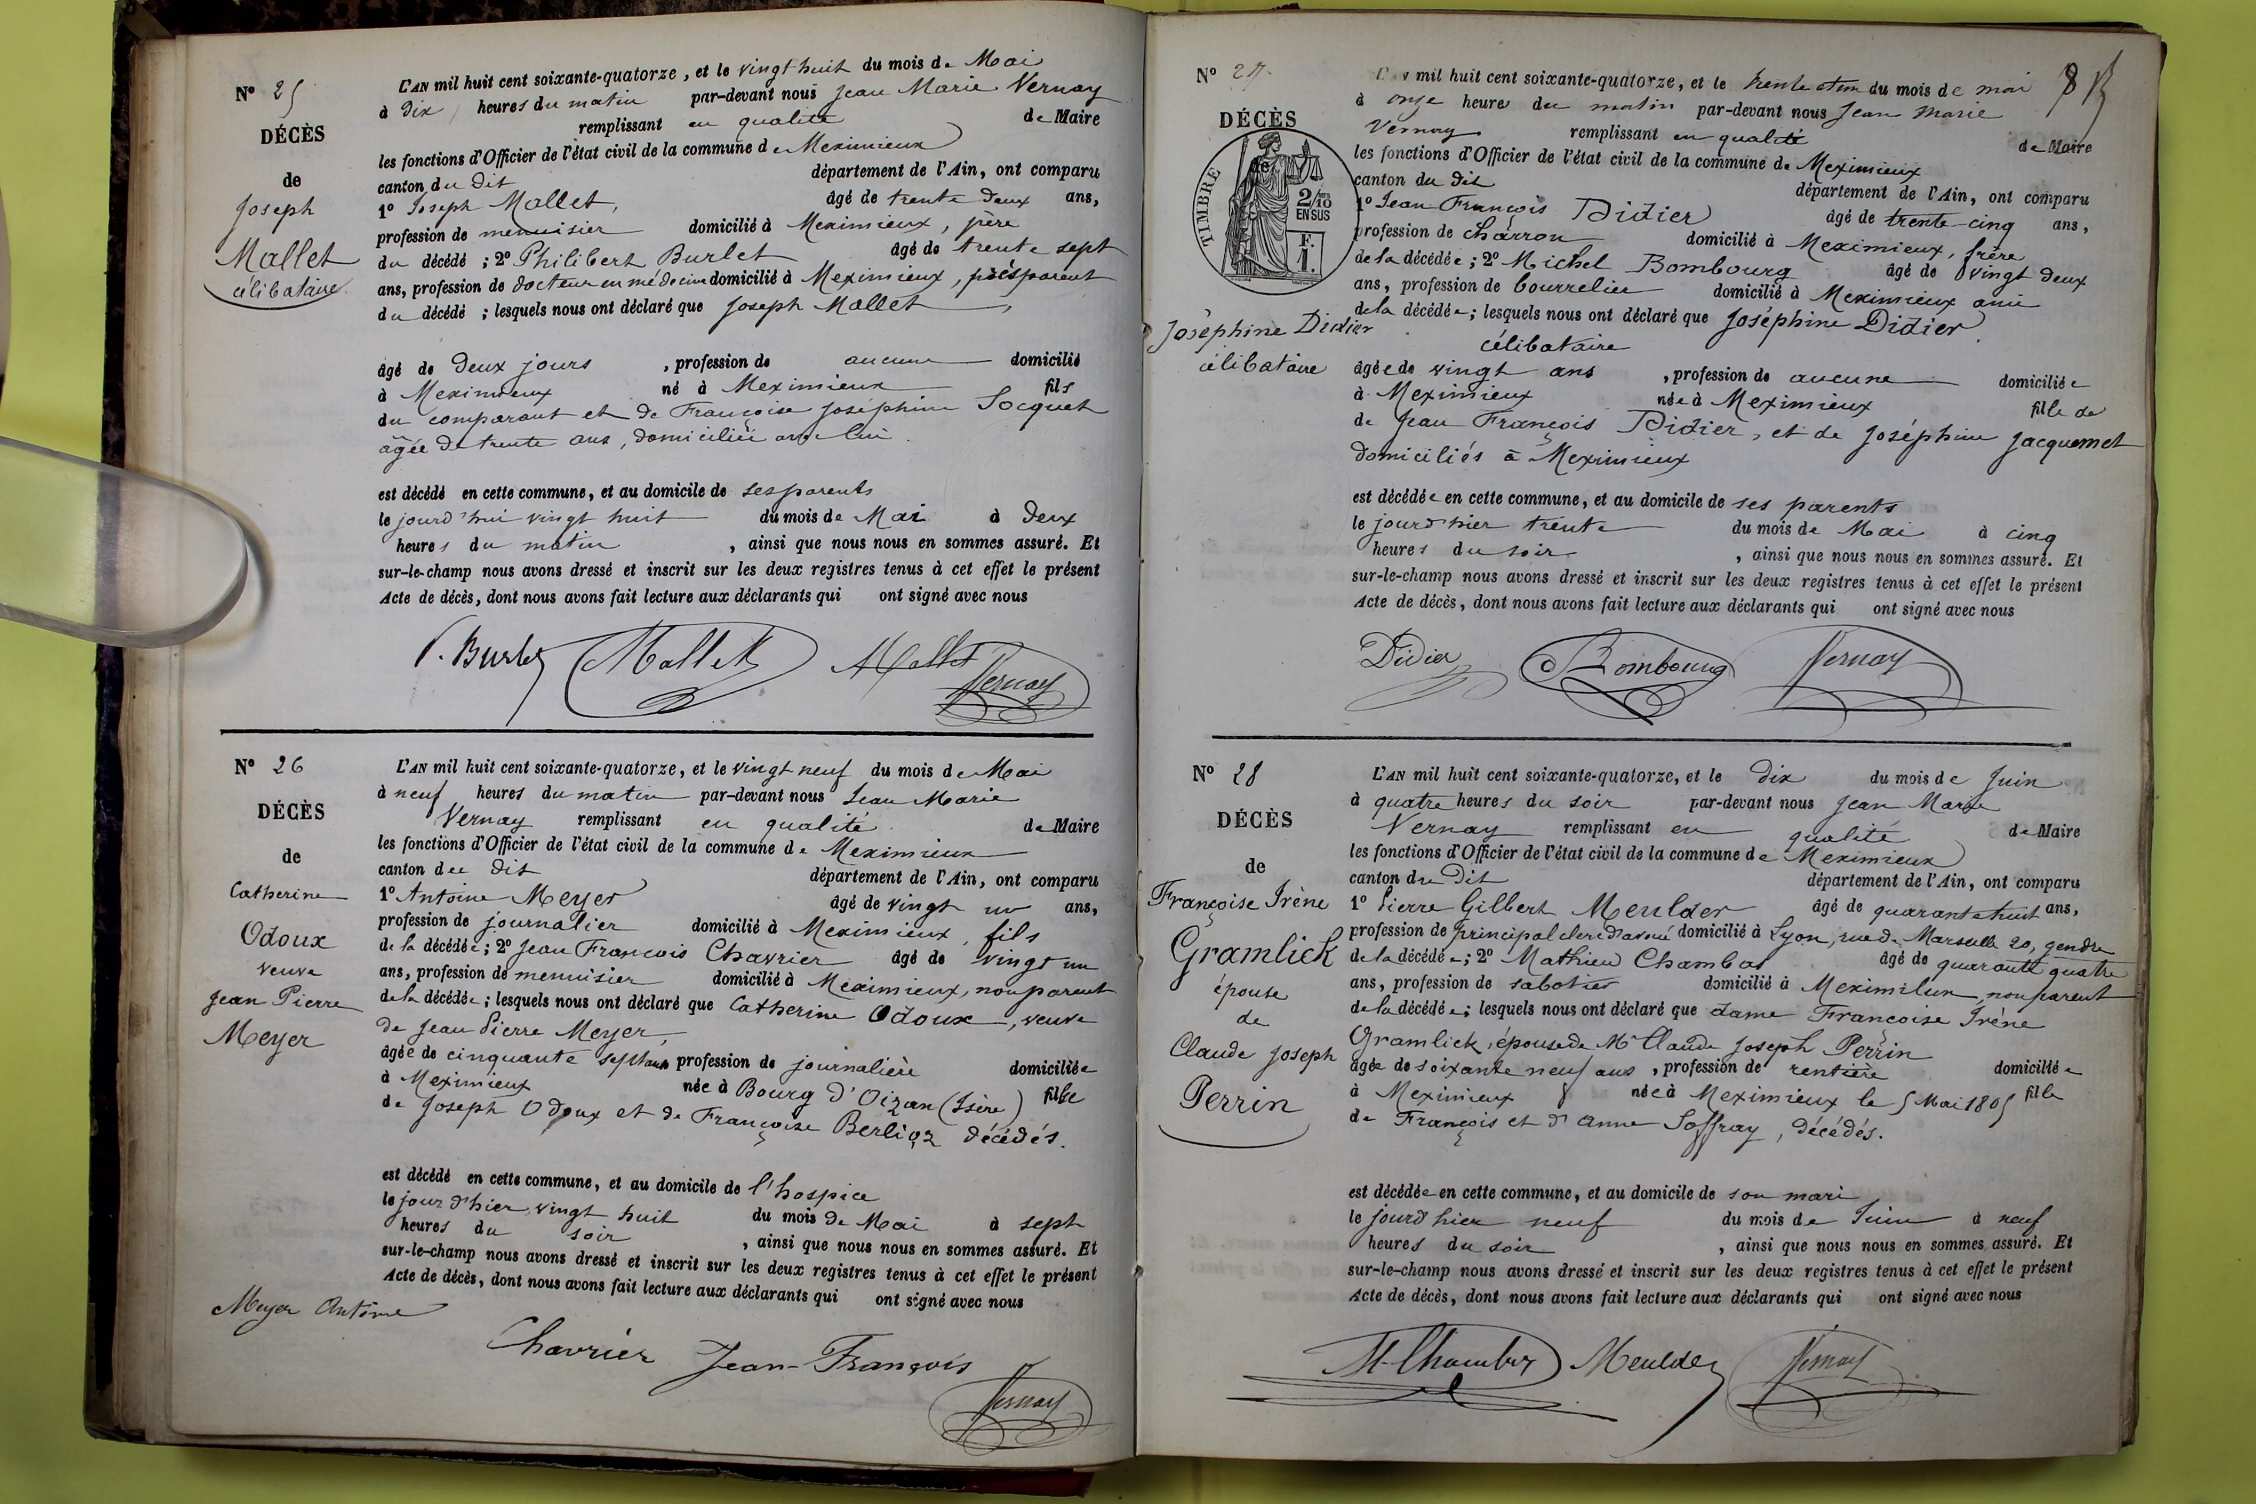 N° 25
DÉCÈS
de
Joseph
Mallet
célibataire
L'AN mil huit cent soixante-quatorze, et le vingt huit du mois de Mai
à dix heures du matin par-devant nous Jean Marie Vernay
remplissant en qualité de Maire
les fonctions d'Officier de l'état civil de la commune de Meximieux
canton du dit département de l'Ain, ont comparu
1° Joseph Mallet, âgé de trente deux ans,
profession de menuisier domicilié à Meximieux, père
du décédé ; 2° Philibert Burlet âgé de trente sept
ans, profession de docteur en médecine domicilié à Meximieux, parent
du décédé ; lesquels nous ont déclaré que Joseph Mallet
âgé de deux jours, profession de aucune domicilié
à Meximieux né à Meximieux fils
du comparant et de Françoise Joséphine Socquet
âgée de trente ans, domiciliée avec lui.
est décédé en cette commune, et au domicile de ses parents
le jourd'hui vingt huit du mois de Mai à deux
heures du matin, ainsi que nous nous en sommes assuré. Et
sur-le-champ nous avons dressé et inscrit sur les deux registres tenus à cet effet le présent
Acte de décès, dont nous avons fait lecture aux déclarants qui ont signé avec nous
P. Burlet Mallet Mallet
Vernay
N° 26
DÉCÈS
de
Catherine
Odoux
veuve
Jean Pierre
Meyer
L'AN mil huit cent soixante-quatorze, et le vingt neuf du mois de Mai
à neuf heures du matin par-devant nous Jean Marie
Vernay remplissant en qualité de Maire
les fonctions d'Officier de l'état civil de la commune de Meximieux
canton du dit département de l'Ain, ont comparu
1° Antoine Meyer âgé de vingt un ans,
profession de journalier domicilié à Meximieux, fils
de la décédée ; 2° Jean François Chavrier âgé de vingt un
ans, profession de menuisier domicilié à Meximieux, non parent
de la décédée ; lesquels nous ont déclaré que Catherine Odoux, veuve
de Jean Pierre Meyer,
âgée de cinquante sept ans profession de journalière domiciliée
à Meximieux née à Bourg d'Oizan (Isère) fille
de Joseph Odoux et de Françoise Berlioz décédés.
est décédé en cette commune, et au domicile de l'hospice
le jour d'hier vingt huit du mois de Mai à sept
heures du soir, ainsi que nous nous en sommes assuré. Et
sur-le-champ nous avons dressé et inscrit sur les deux registres tenus à cet effet le présent
Acte de décès, dont nous avons fait lecture aux déclarants qui ont signé avec nous
Meyer Antoine
Chavrier Jean-François
Vernay
N° 27
DÉCÈS
de
TIMBRE
2/10
EN SUS
F.
1.
Joséphine Didier
célibataire
L'AN mil huit cent soixante-quatorze, et le trente et un du mois de mai
à onze heures du matin par-devant nous Jean Marie
Vernay remplissant en qualité de Maire
les fonctions d'Officier de l'état civil de la commune de Meximieux
canton du dit département de l'Ain, ont comparu
1° Jean François Didier âgé de trente-cinq ans,
profession de charron domicilié à Meximieux, frère
de la décédée ; 2° Michel Bombourg âgé de vingt deux
ans, profession de bourrelier domicilié à Meximieux ami
de la décédée ; lesquels nous ont déclaré que Joséphine Didier
célibataire
âgée de vingt ans, profession de aucune domiciliée
à Meximieux née à Meximieux fille de
de Jean François Didier, et de Joséphine Jacquemet
domiciliés à Meximieux
est décédée en cette commune, et au domicile de ses parents
le jour d'hier trente du mois de Mai à cinq
heures du soir, ainsi que nous nous en sommes assuré. Et
sur-le-champ nous avons dressé et inscrit sur les deux registres tenus à cet effet le présent
Acte de décès, dont nous avons fait lecture aux déclarants qui ont signé avec nous
Didier Bombourg Vernay
N° 28
DÉCÈS
de
Françoise Irène
Gramlick
épouse
de
Claude Joseph
Perrin
L'AN mil huit cent soixante-quatorze, et le dix du mois de Juin
à quatre heures du soir par-devant nous Jean Marie
Vernay remplissant en qualité de Maire
les fonctions d'Officier de l'état civil de la commune de Meximieux
canton du dit département de l'Ain, ont comparu
1° Pierre Gilbert Meulder âgé de quarante huit ans,
profession de principal clerc d'avoué domicilié à Lyon, rue de Marseille 20, gendre
de la décédée ; 2° Mathieu Chambas âgé de quarante quatre
ans, profession de sabotier domicilié à Meximieux, non parent
de la décédée ; lesquels nous ont déclaré que dame Françoise Irène
Gramlick, épouse de Mr Claude Joseph Perrin
âgée de soixante neuf ans, profession de rentière domiciliée
à Meximieux née à Meximieux le 5 Mai 1805 fille
de François et d'Anne Soffray, décédés.
est décédée en cette commune, et au domicile de son mari
le jour d'hier neuf du mois de Juin à neuf
heures du soir, ainsi que nous nous en sommes assuré. Et
sur-le-champ nous avons dressé et inscrit sur les deux registres tenus à cet effet le présent
Acte de décès, dont nous avons fait lecture aux déclarants qui ont signé avec nous
Meulder Vernay